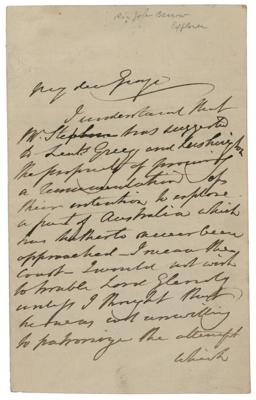 Sir John Barrow
Explorer
My dear George
I understand that
Mr. Stephen has suggested
to Lieuts Grey and Lushington
the propriety of procuring
a recommendation of
their intention to explore
a part of Australia which
has hitherto never been
approached – I mean the
coast – I would not wish
to trouble Lord Glenelg
unless I thought that
he was not unwilling
to patronize the attempt
which